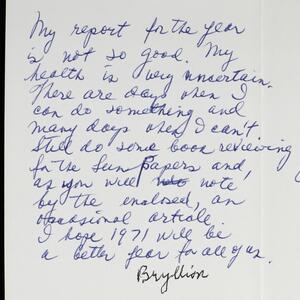 My report for the year
is not so good. My
health is very uncertain.
There are days when I
can do something and
many days when I can't
Still do some book reviewing
for the Sun Papers and,
as you will note
by the enclosed, an
occasional article.
I hope 1971 will be
a better year for all of us.
Bryllion